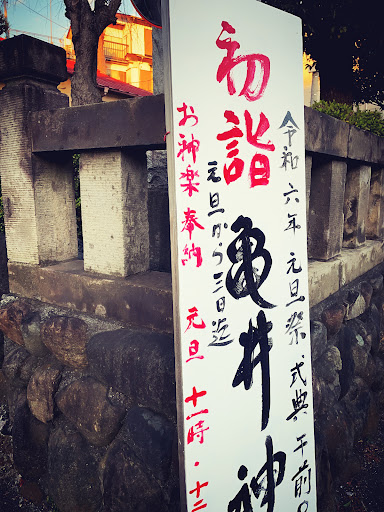 令和六年元旦祭式典午前0
初詣
亀井神
元旦から三日迄
お神楽奉納 元旦 十一時・十二